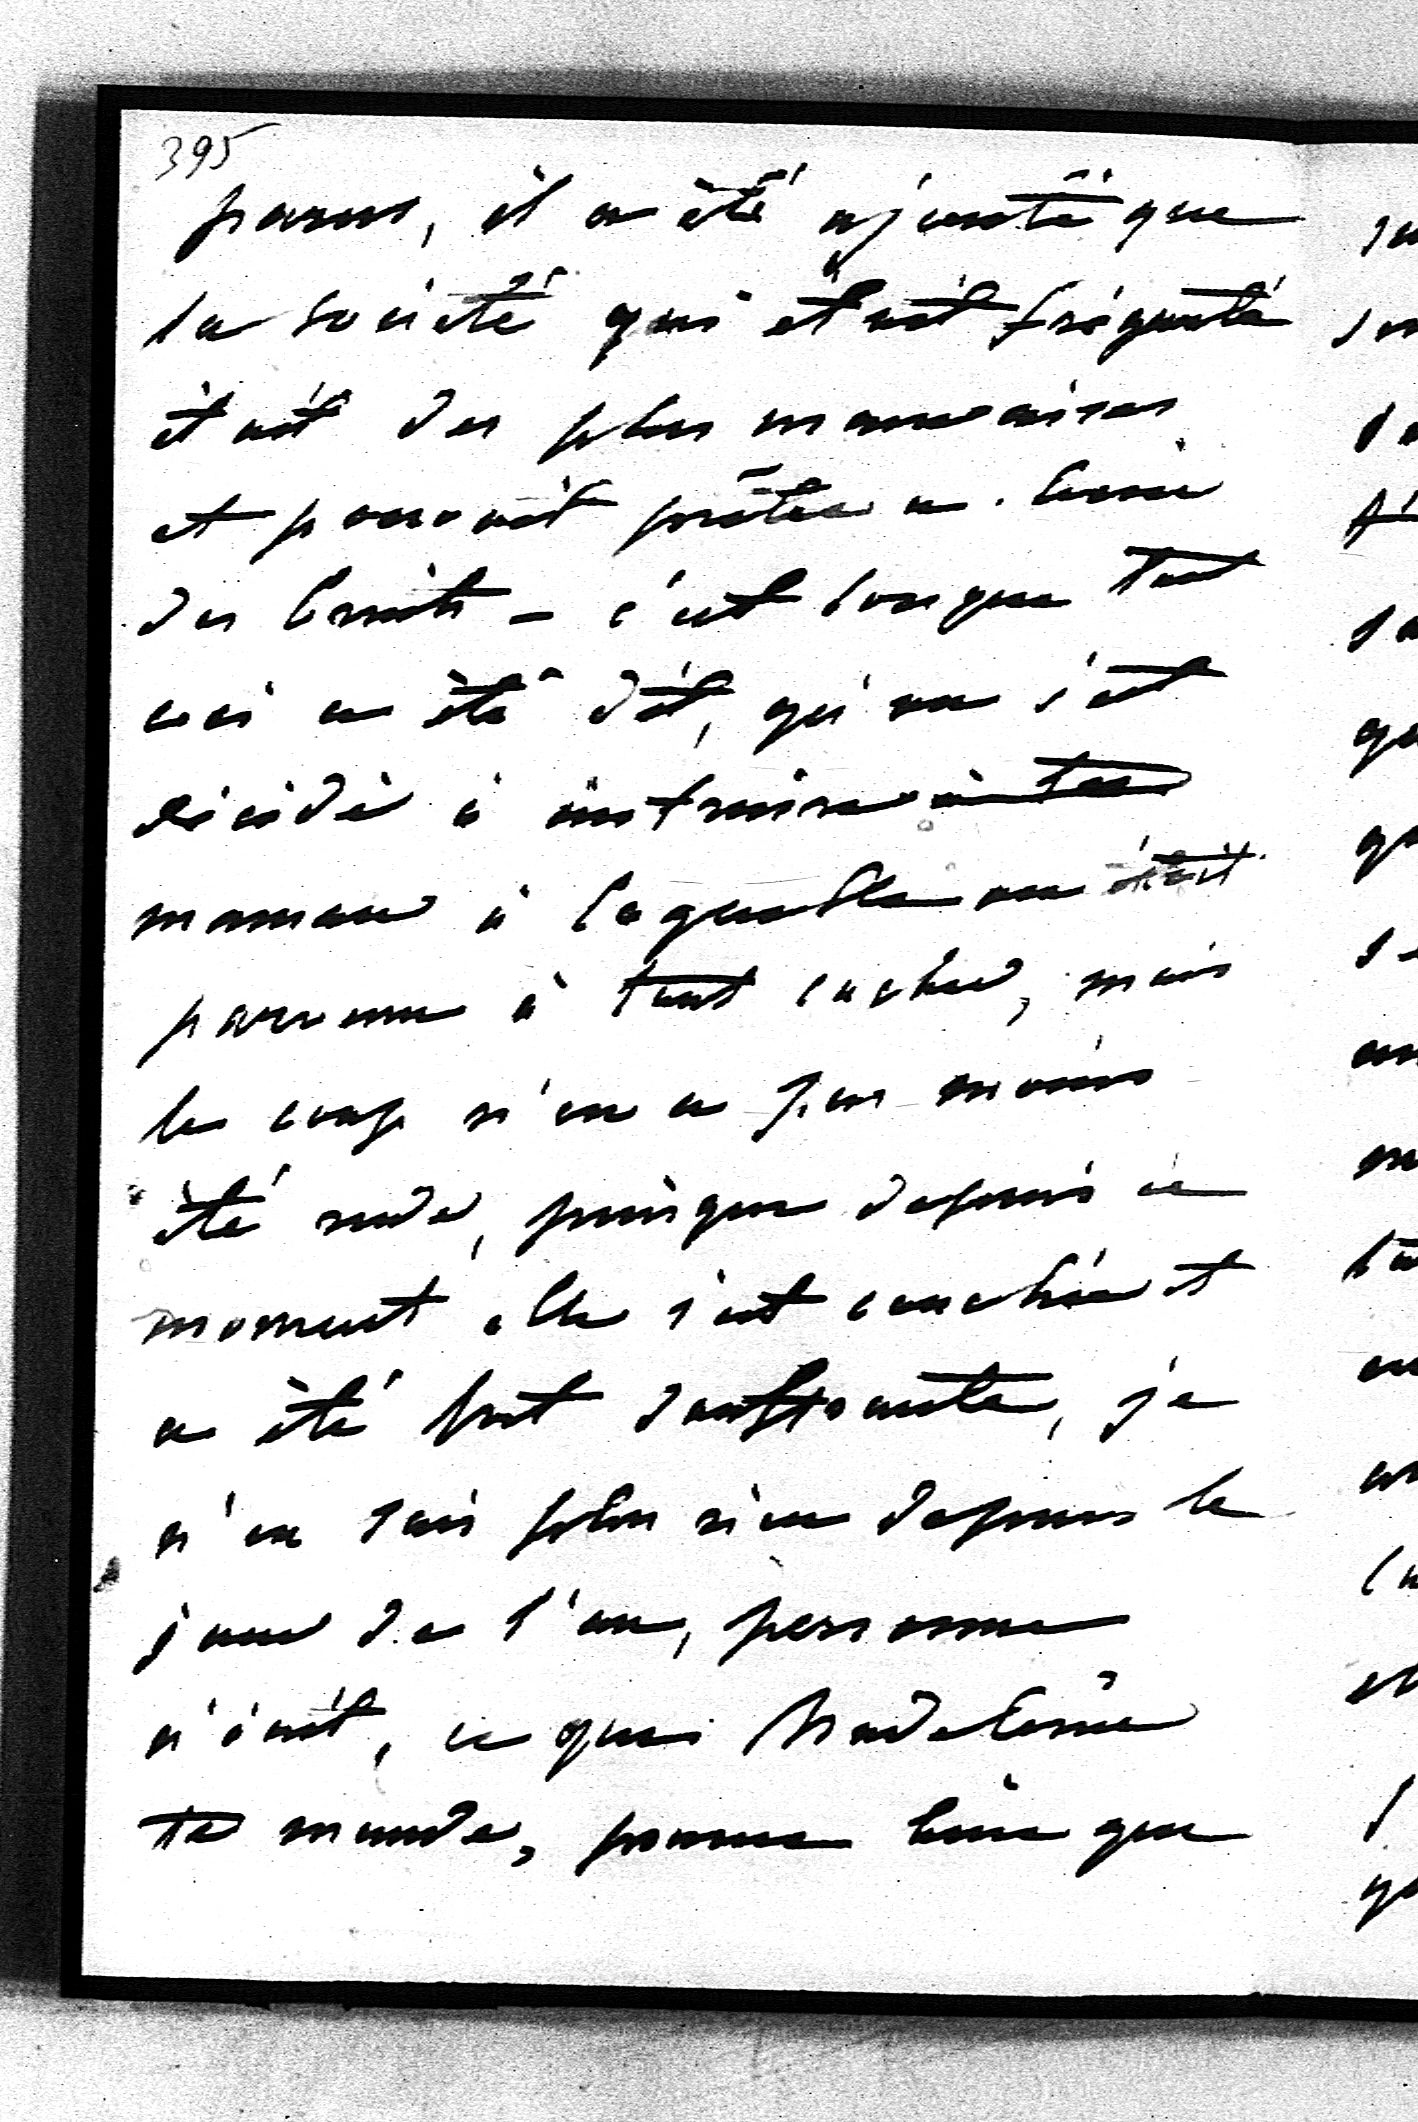 395
parus, il a été ajouté que
la société qui était fréquenté
était des plus mauvaises
et pouvait prêter a bien
des bruits – c'est lorsque tout
ceci a été dit, qu'on s'est
décidé à instruire
maman à laquelle on était
parvenu à tout cacher, mais
le coup n'en a pas moins
été rude, puisque depuis ce
moment elle s'est couchée et
a été fort souffrante, je
n'en sais plus rien depuis le
jour de l'an, personne
n'écrit, ce que Madeleine
te mande, prouve bien que